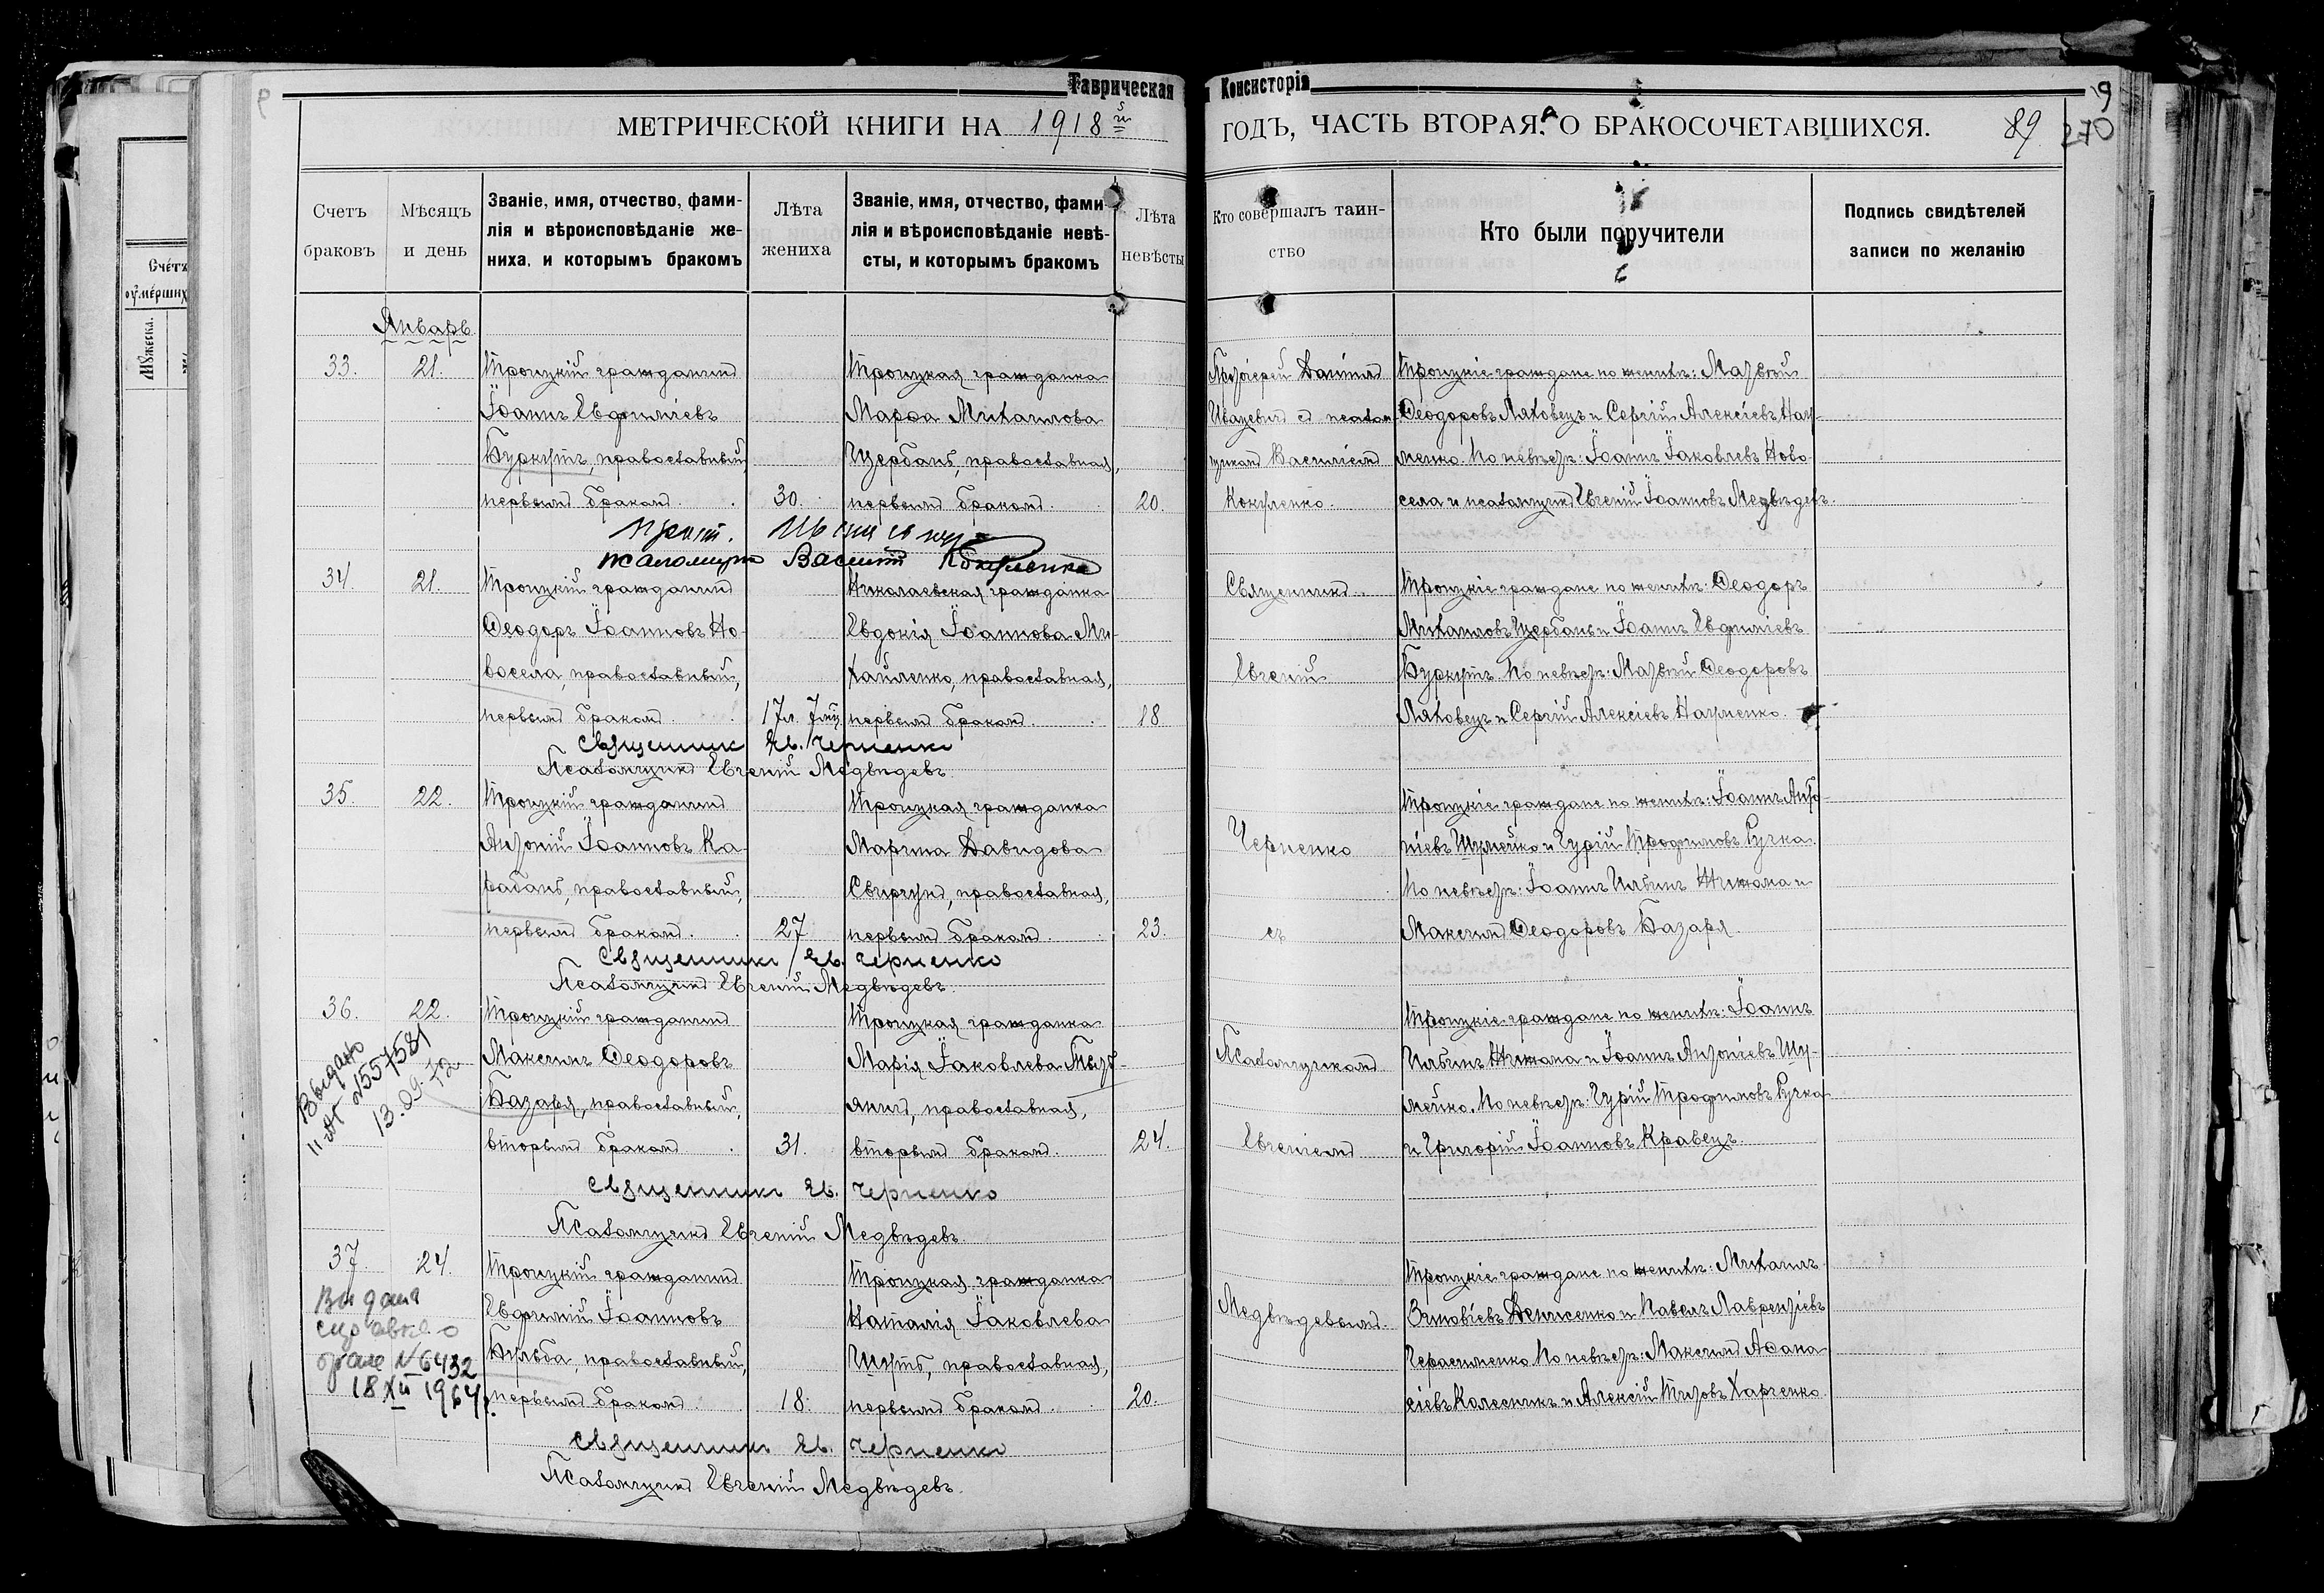 Таврическая Консисторія
9
МЕТРИЧЕСКОЙ КНИГИ НА 1918й
ГОДЪ, ЧАСТЬ ВТОРАЯ, О БРАКОСОЧЕТАВШИХСЯ.
89
270
Счетъ браковъ
Мѣсяцъ и день
Званіе, имя, отчество, фами-
лія и вѣроисповѣданіе же-
ниха, и которымъ бракомъ
Лѣта жениха
Званіе, имя, отчество, фами-
лія и вѣроисповѣданіе невѣ-
сты, и которымъ бракомъ
Лѣта невѣсты
Кто совершалъ таин-
ство
Кто были поручители
Подпись свидѣтелей
записи по желанію
Счетъ
умершихъ
Мужеска.
Январь
33. 21.
Троицкій гражданинъ
Іоаннъ Евфиміевъ
Буркутъ, православный
первымъ бракомъ. 30.
Троицкая гражданка
Марѳа Михаилова
Щербань, православная,
первымъ бракомъ. 20.
Протоіерей Даніилъ
Иваневичъ съ псалом-
щикомъ Василіемъ
Кокуленко.
Троицкіе граждане по женихѣ: Матвѣй
Ѳеодоровъ Ляховецъ и Сергій Алексіевъ Нау-
менко. По невѣстѣ: Іоаннъ Іаковлевъ Ново-
села и псаломщикъ Евгеній Іоанновъ Медвѣдевъ.
псаломщикъ Василій Кокуленко
34 21.
Троицкій гражданинъ
Ѳеодоръ Іоанновъ Но-
восела, православный,
первымъ бракомъ. 17л. 7мц.
Николаевская гражданка
Евдокія Іоаннова Ми-
хайленко, православная,
первымъ бракомъ. 18
Священникъ
Евгеній
Троицкіе граждане по женихѣ: Ѳеодоръ
Михаиловъ Щербань и Іоаннъ Евфиміевъ
Буркутъ. По невѣстѣ: Матвѣй Ѳеодоровъ
Ляховецъ и Сергій Алексіевъ Науменко.
Священникъ Ев. Черненко
Псаломщикъ Евгеній Медвѣдевъ.
35. 22.
Троицкій гражданинъ
Антоній Іоанновъ Ка-
рабань, православный,
первымъ бракомъ. 27
Троицкая гражданка
Марина Давидова
Свиргунъ, православная,
первымъ бракомъ. 23.
Черненко
съ
Троицкіе граждане по женихѣ: Іоаннъ Анто-
ніевъ Шумейко и Гурій Трофимовъ Гучка.
По невѣстѣ: Іоаннъ Ильинъ
Максимъ Ѳеодоровъ Базаря.
Священникъ Ев. Черненко
Псаломщикъ Евгеній Медвѣдевъ.
36. 22.
Выдано
№557581
Троицкій гражданинъ
Максимъ Ѳеодоровъ
Базаря, православный,
вторымъ бракомъ. 31.
Троицкая гражданка
Марія Іаковлева
православная,
вторымъ бракомъ. 24.
Псаломщикомъ
Евгеніемъ
Троицкіе граждане по женихѣ: Іоаннъ
Ильинъ и Іоаннъ Антоніевъ Шу-
мейко. По невѣстѣ: Гурій Трофимовъ Гучка
и Григорій Іоанновъ Кравецъ.
Священникъ Ев. Черненко
Псаломщикъ Евгеній Медвѣдевъ.
37. 24.
Выдана
справка о
браке №6432
18 XII 1964г.
Троицкій гражданинъ
Евфимій Іоанновъ
Бульба, православный,
первымъ бракомъ. 18.
Троицкая гражданка
Наталія Іаковлева
Шутъ, православная,
первымъ бракомъ. 20.
Медвѣдевымъ.
Троицкіе граждане по женихѣ: Михаилъ
Зиновіевъ Денисенко и Павелъ Лаврентіевъ
Герасименко. По невѣстѣ: Максимъ Аѳана-
сіевъ Колесникъ и Алексій Титовъ Харченко.
Священникъ Ев. Черненко
Псаломщикъ Евгеній Медвѣдевъ.